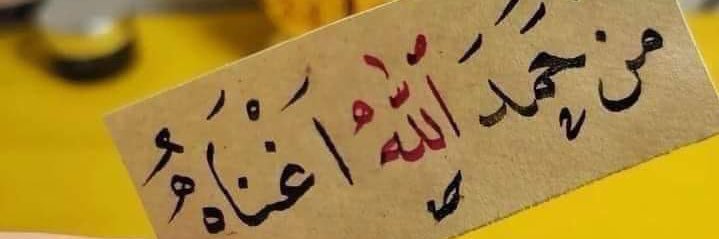 من حَمَدَ اللّٰهُ اَغْنَاهُ